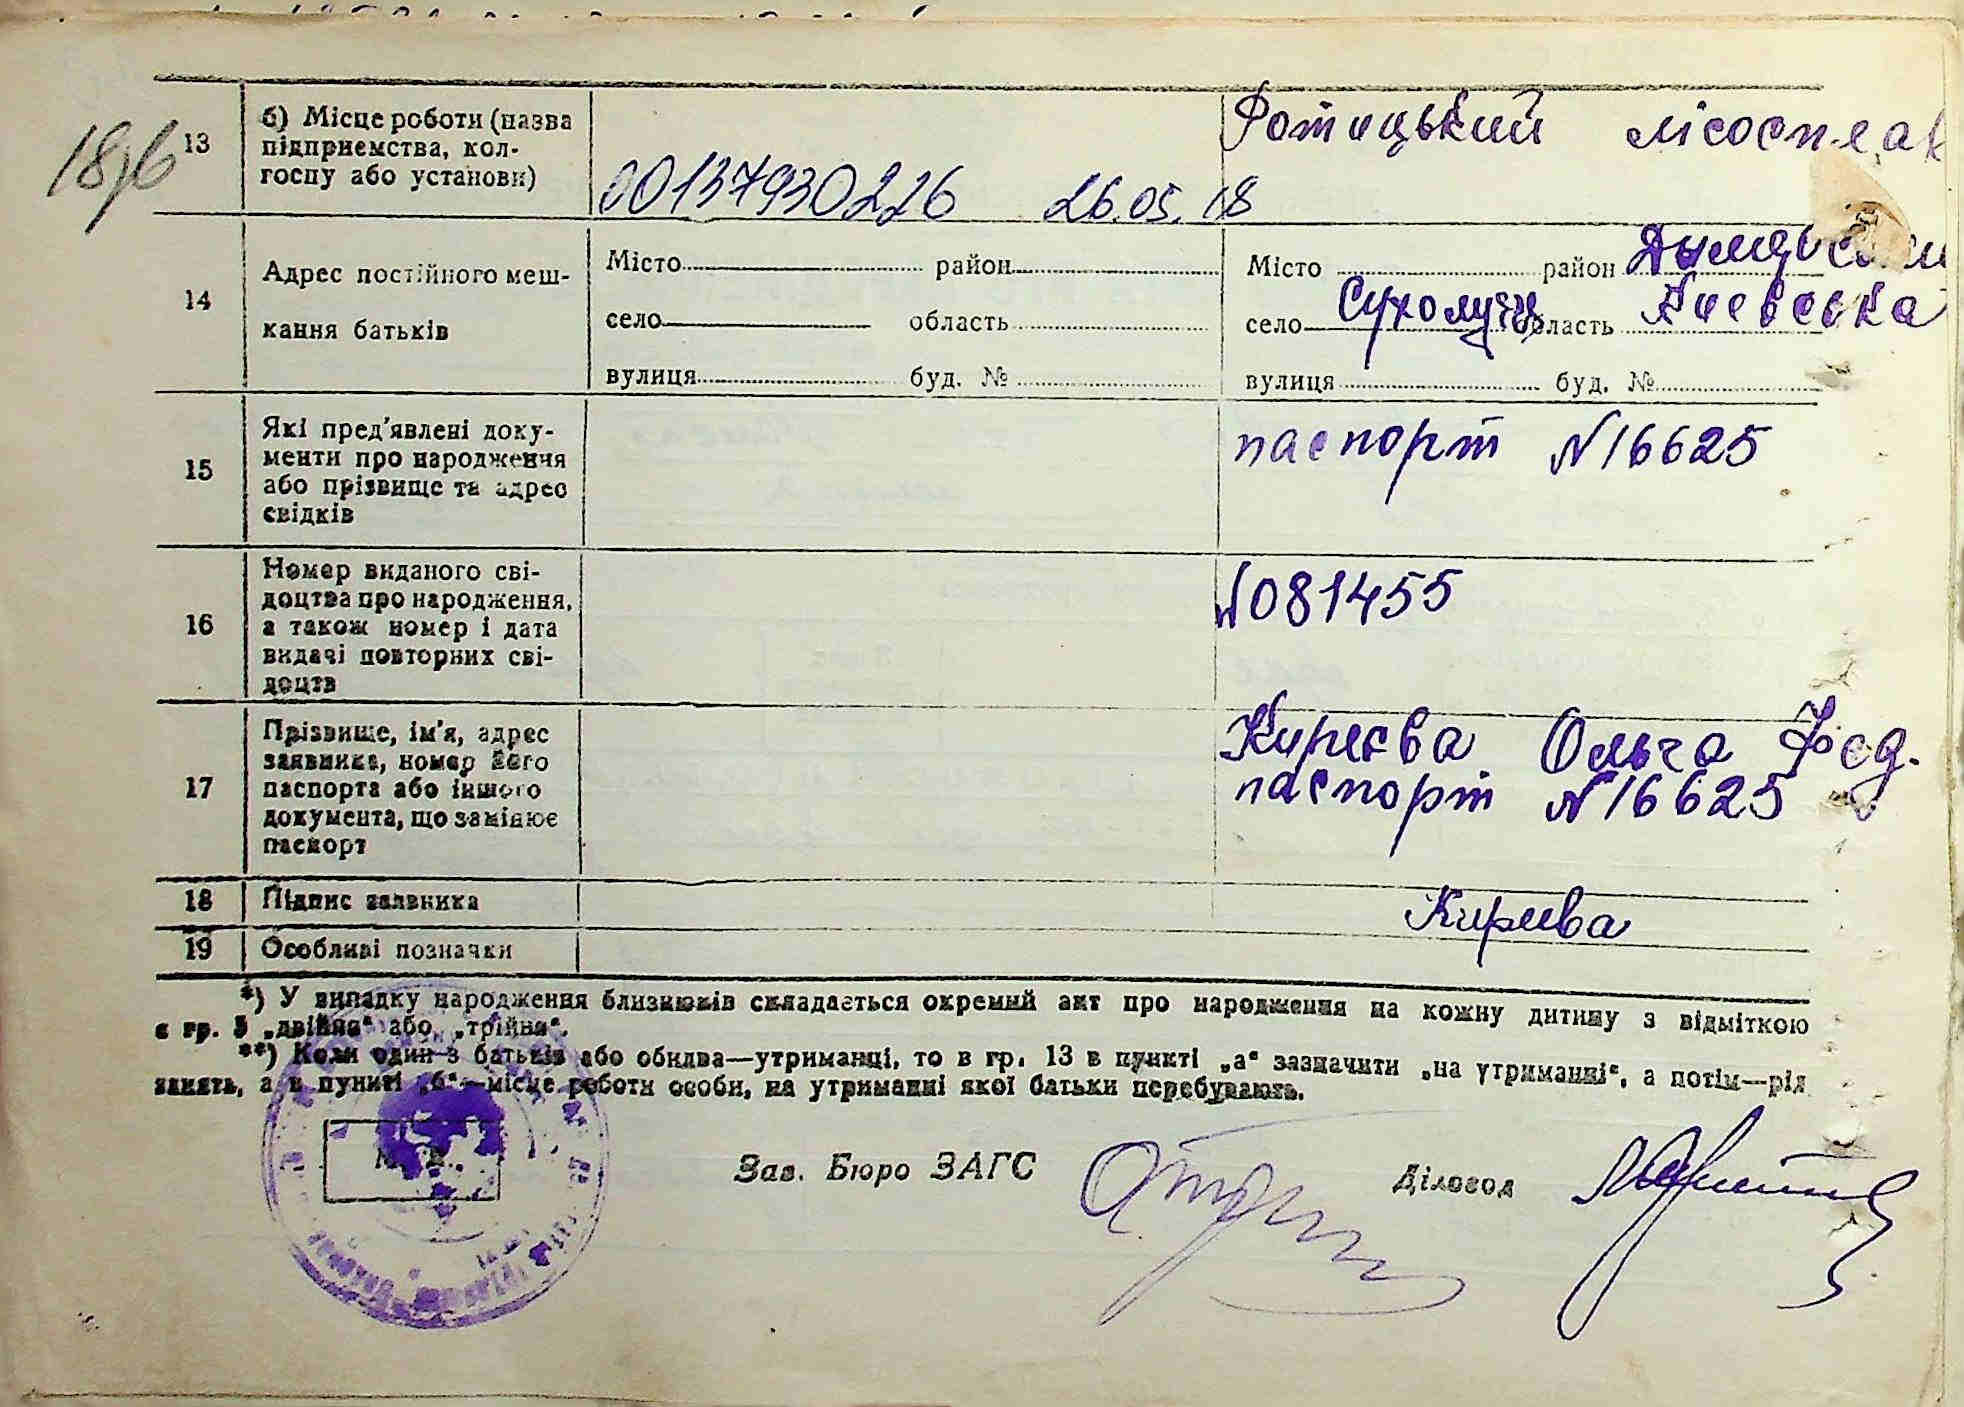 18/6
13
б) Місце роботи (назва
підприємства, кол-
госпу або установи)
00137930226 26.05.18
Фотицький лісосплав
14
Адрес постійного меш-
кання батьків
Місто район
село область
вулиця буд. №
Місто район
село Сухолуччя область Київська
вулиця буд. №
15
Які пред'явлені доку-
менти про народження
або прізвище та адрес
свідків
паспорт N 16625
16
Номер виданого сві-
доцтва про народження,
а також номер і дата
видачі повторних сві-
доцтв
N081455
17
Прізвище, ім'я, адрес
заявника, номер його
паспорта або іншого
документа, що замінює
паспорт
Киреєва Ольга Фед.
паспорт N 16625
18
Підпис заявника
Киреева
19
Особливі позначки
*) У випадку народження близнюків складається окремий акт про народження на кожну дитину з відміткою
в гр. 5 „двійня“ або „трійня“.
**) Коли один з батьків або обидва—утриманці, то в гр. 13 в пункті „а“ зазначити „на утриманні“, а потім—рід
занять, а в пункті „б“—місце роботи особи, на утриманні якої батьки перебувають.
Зав. Бюро ЗАГС
Діловод